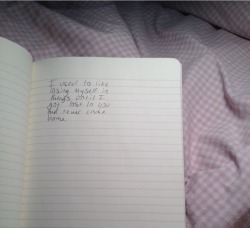 I used to like
losing myself in
things until I
got lost in you
and never came
home.